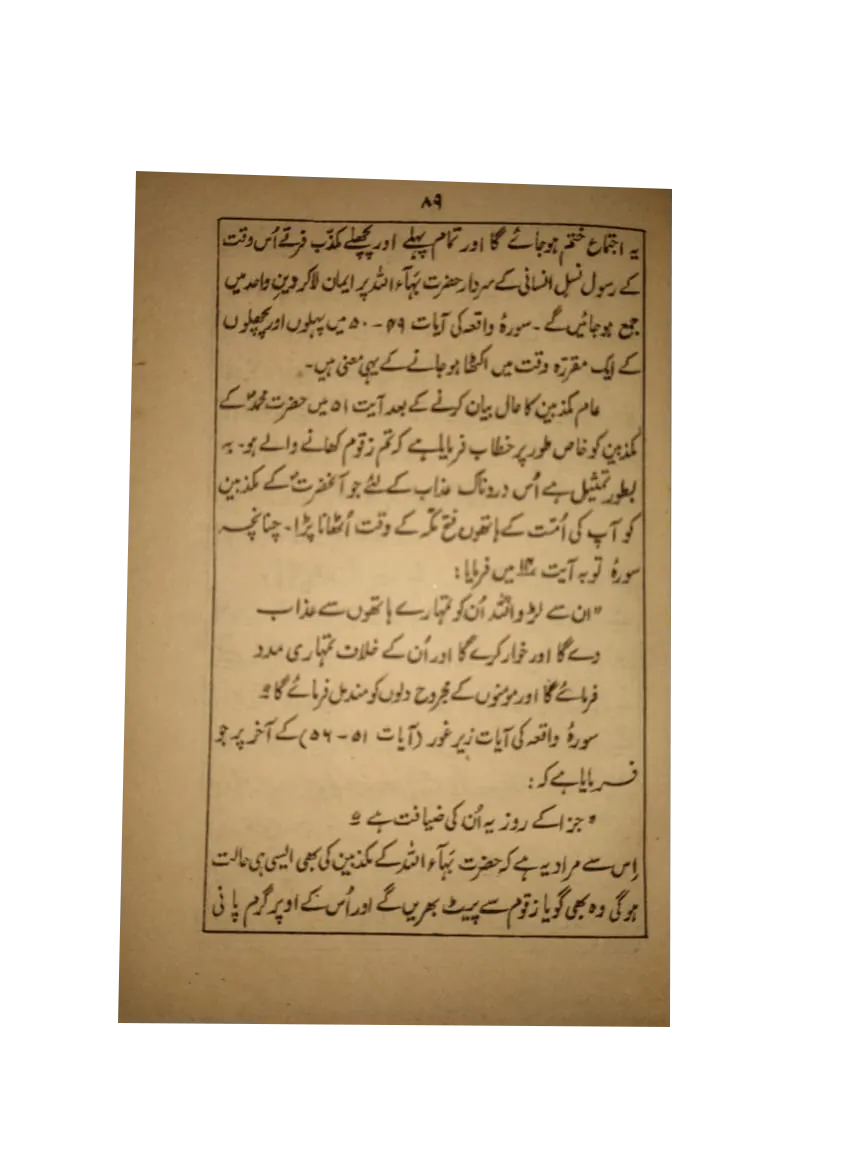 ۸۹
یہ اجتماع ختم ہوجائے گا اور تمام پہلے اور پچھلے مکذّب فرقے اُس وقت
کے رسول نسل انسانی کے سردار حضرت بہآء اللہ پر ایمان لاکر دینِ واحد میں
جمع ہوجائیں گے ۔ سورۂ واقعہ کی آیات ۴۹ - ۵۰ میں پہلوں اور پچھلوں
کے ایک مقررّہ وقت میں اکٹھا ہوجانے کے یہی معنی ہیں ۔
عام مکذبین کا حال بیان کرنے کے بعد آیت ۵۱ میں حضرت محمدؐ کے
مکذبین کو خاص طور پر خطاب فرمایا ہے کہ تم زقوم کھانے والے ہو۔ یہ
بطور تمثیل ہے اُس دردناک عذاب کے لئے جو آنحضرتؐ کے مکذبین
کو آپ کی اُمّت کے ہاتھوں فتح مکّہ کے وقت اُٹھانا پڑا ۔ چنانچہ
سورۂ توبہ آیت ۱۴ میں فرمایا :
"ان سے لڑو اللہ اُن کو تمہارے ہاتھوں سے عذاب
دے گا اور خوار کرے گا اور اُن کے خلاف تمہاری مدد
فرمائے گا اور مومنوں کے مجروح دلوں کو مندمل فرمائے گا"
سورۂ واقعہ کی آیات زیر غور (آیات ۵۱ - ۵۶) کے آخر پر جو
فرمایا ہے کہ :
"جزا کے روز یہ اُن کی ضیافت ہے"
اِس سے مراد یہ ہے کہ حضرت بہآء اللہ کے مکذبین کی بھی ایسی ہی حالت
ہوگی وہ بھی گویا زقوم سے پیٹ بھریں گے اور اُس کے اوپر گرم پانی